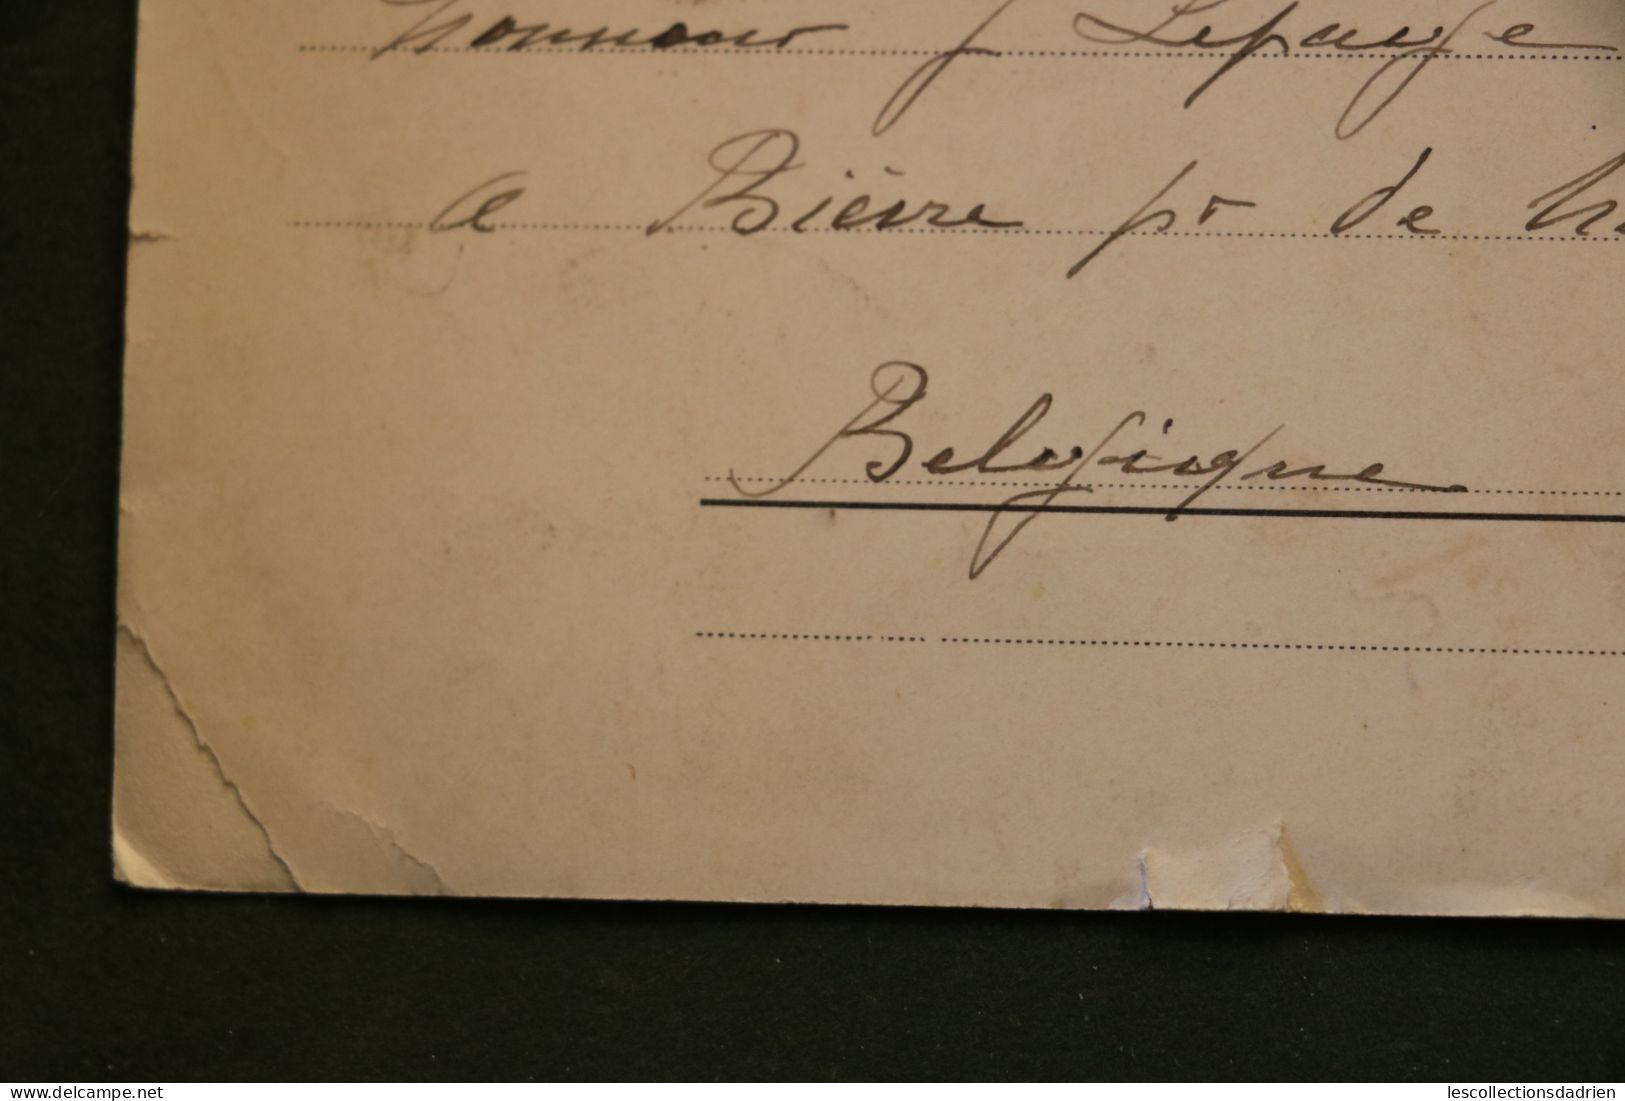 Monsieur J Lepaige
a Bièvre pr de
Belgique
delcampe.net
lescollectionsdadrien